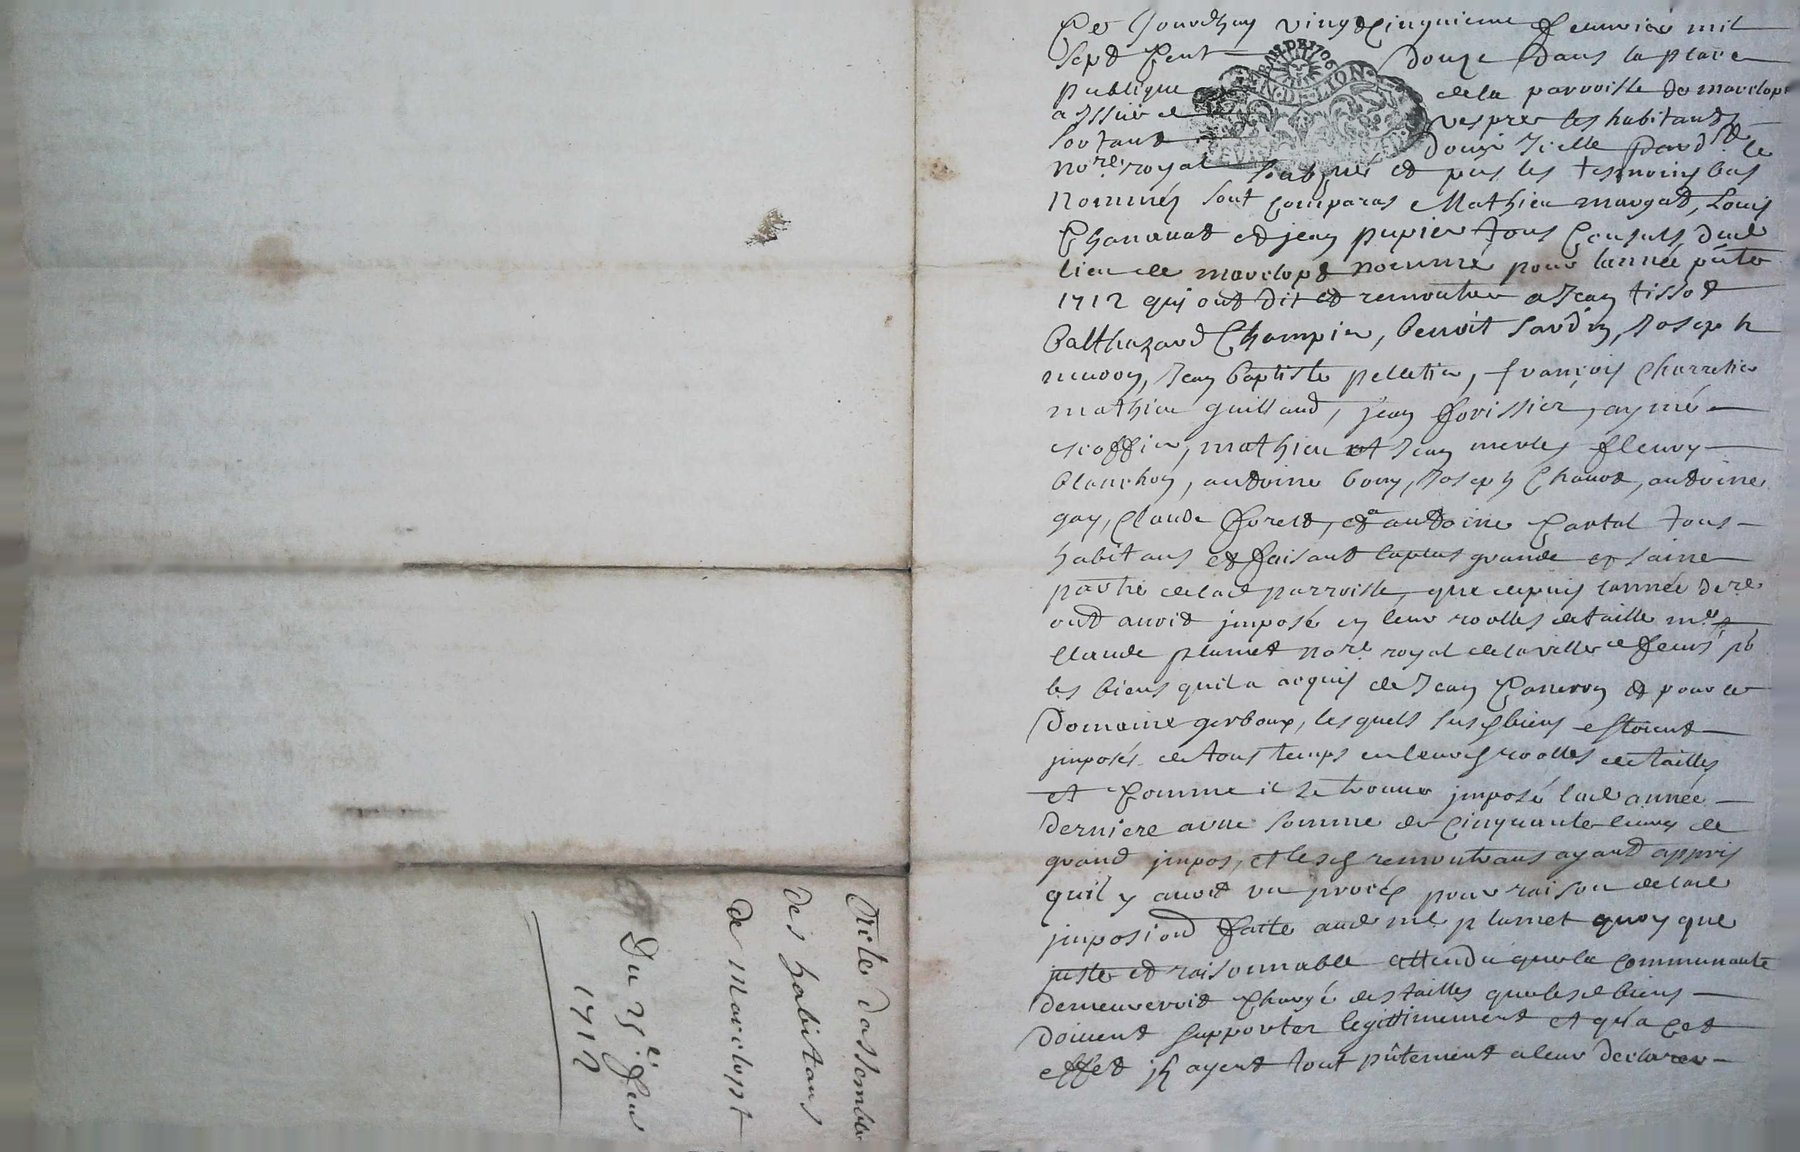 Ce Jourdhuy vingt Cinquieme feuvrier mil
Sept Cent douze dans la place
publique de la parroisse de marclopt
a issüe de vespres les habitants
sortant douïr Icelle pard.t le
no.re royal soubsigné et pnts les tesmoins bas
nommés sont comparus Mathieu margat, Louis
Chanauat et jean pupier tous Consuls dud
lieu de marclopt nommé pour lannée pñte
1712 qui ont dit et remontrer a Jean tissot
balthazard Champier, benoit sardin, Joseph
Jean baptiste pelletier, françois Charretier
mathieu guillaud, jean forissier, aymé
escoffier, mathieu et Jean merles fleury
blanchon, antoine bory, Joseph Chauot, antoine
gay, Claude forest, et antoine Cantal tous
habitans et faisant la plus grande et saine
partie de lad parroisse, que depuis lannée
ont auoit jmposé en leur roolles de taille m.e
Claude plumet no.re royal de la ville de feurs po
les biens quil a acquis de Jean et pour le
Domaine gerboux, lesquels susd biens estoient
jmposés de tous temps en leurs roolles de tailles
et Comme il se trouue jmposé lad année
derniere a une somme de Cinquante liures de
grand jmpos, et lesd remontrans ayant appris
quil y auoit un procés pour raison de lad
jmposiond faite aud me plumet quoy que
juste et raisonnable attendu que la Communauté
demeureroit Chargé des tailles que lesd biens
doiuent supporter legittimement et qu'a Cet
effet jls ayent tout pñtement a leur declarer
Acte dassemblée
des habitans
de Marclopt
Du 25.e feu
1712
GEN.DE.LION